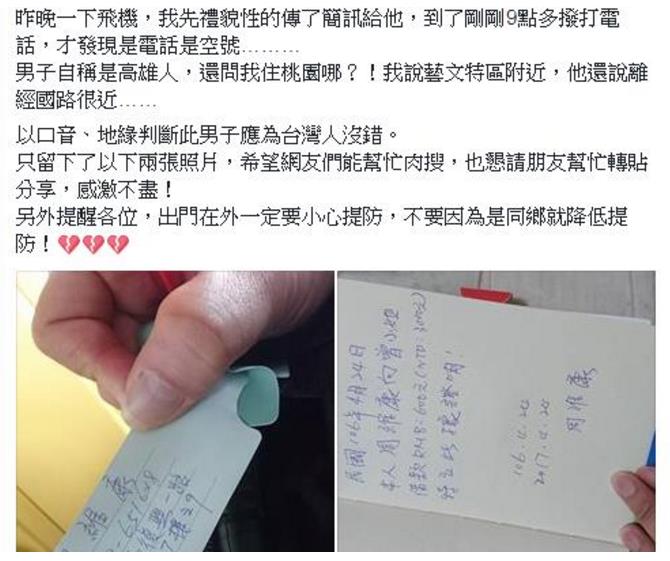 昨晚一下飛機，我先禮貌性的傳了簡訊給他，到了剛剛9點多撥打電
話，才發現是電話是空號………
男子自稱是高雄人，還問我住桃園哪？！我說藝文特區附近，他還說離
經國路很近……
以口音、地緣判斷此男子應為台灣人沒錯。
只留下了以下兩張照片，希望網友們能幫忙肉搜，也懇請朋友幫忙轉貼
分享，感激不盡！
另外提醒各位，出門在外一定要小心提防，不要因為是同鄉就降低提
防！💔💔💔
維康
民國106年4月24日
本人周維康向曾小姐
借款RMB:600元(NTD:3000元)
特立此據證明!
106.4.24
2017.4.24
周維康